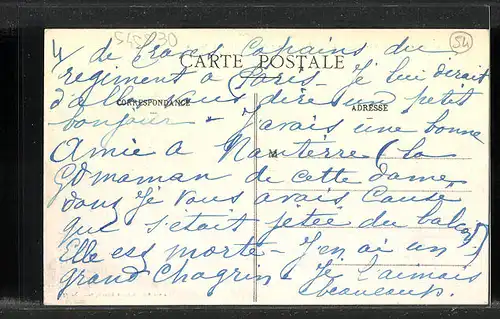 4/ de braves copains du
545230
54
CARTE POSTALE
régiment a Paris. Je lui dirait
d'aller vous dire un petit
CORRESPONDANCE
ADRESSE
bonjour - J'avais une bonne
M
Amie a Nanterre (la
Gdmaman de cette dame
dont Je vous avais Causé
que s'était jetée du balcon)
Elle est morte - J'en ai un
grand Chagrin - Je l'aimais
beaucoup.